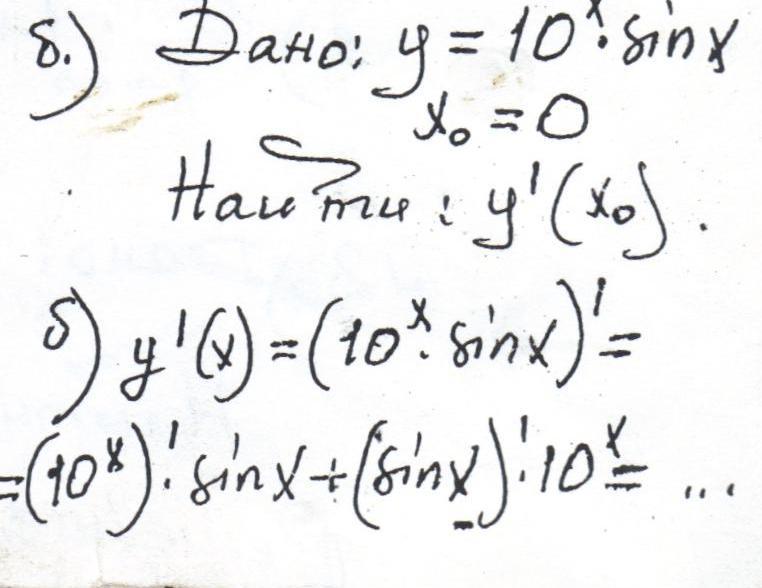 б.) Дано: y = 10ˣ · sinx
x₀ = 0
Найти: y'(x₀).
б) y'(x) = (10ˣ · sinx)' =
=(10ˣ)' · sinx + (sinx)' · 10ˣ = ...